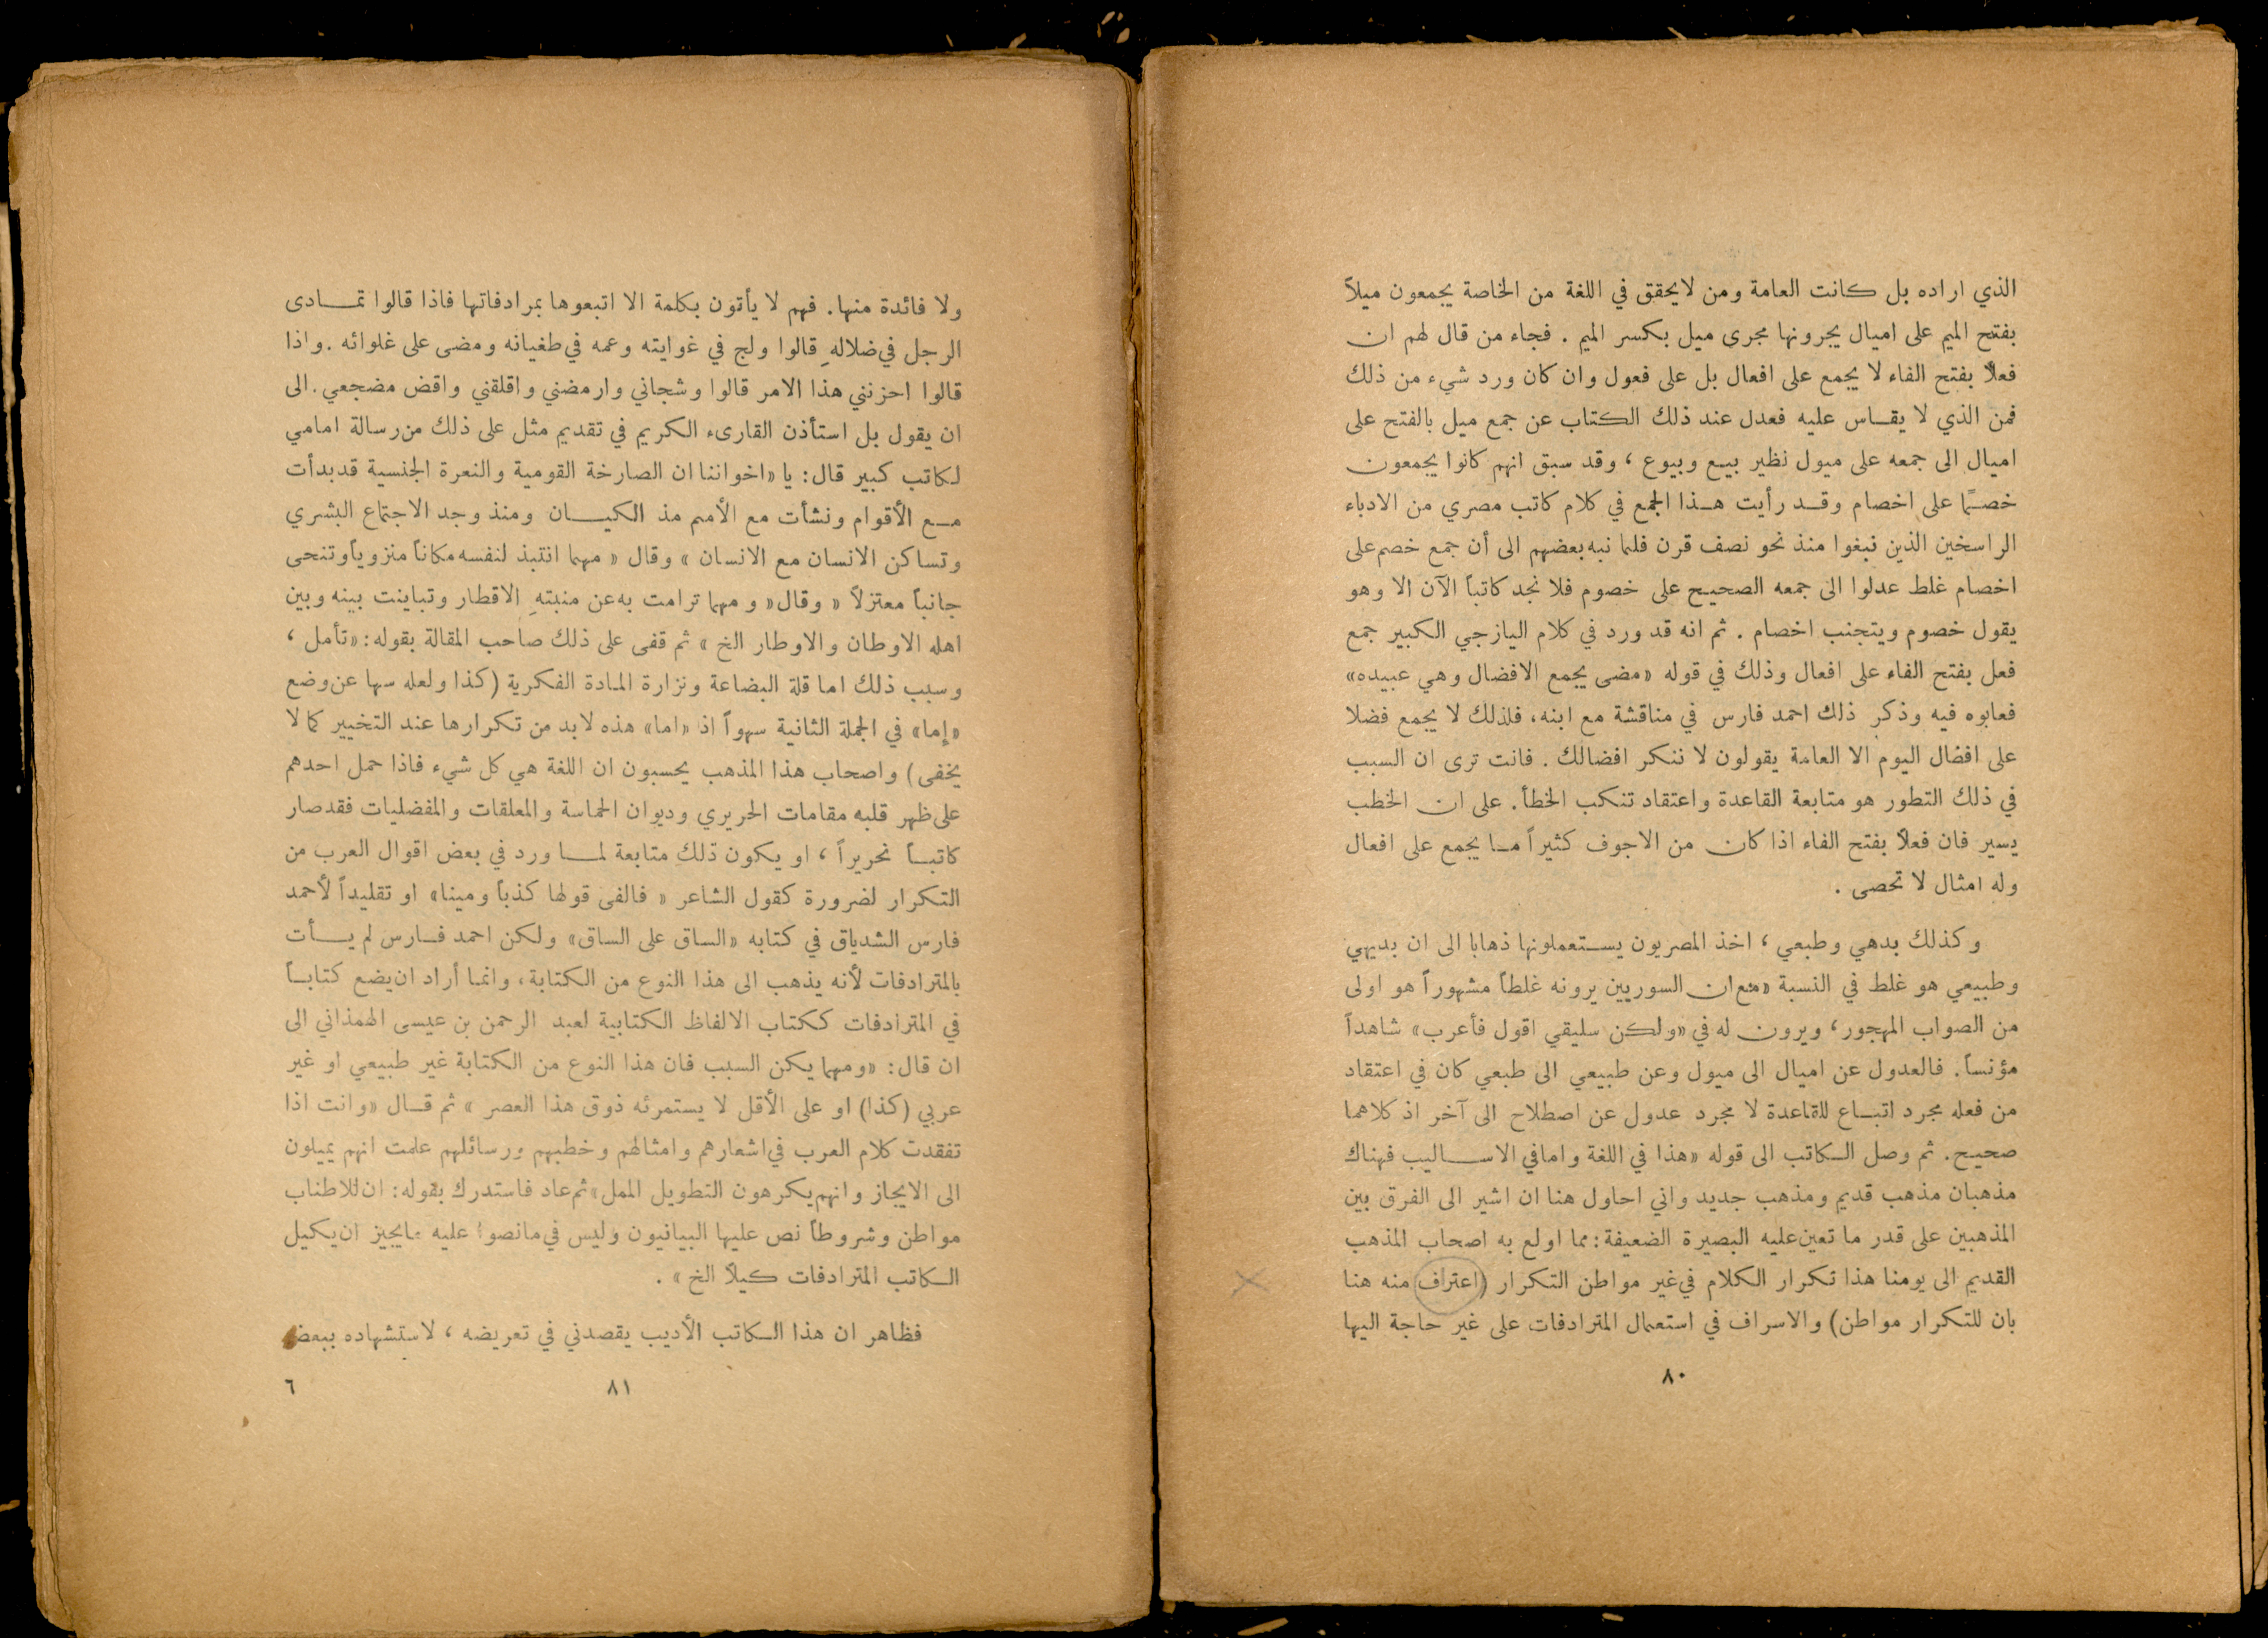 الذي اراده بل كانت العامة ومن لايحقق في اللغة من الخاصة يجمعون ميلاً
بفتح الميم على اميال يجرونها مجرى ميل بكسر الميم . فجاء من قال لهم ان
فعلاً بفتح الفاء لا يجمع على افعال بل على فعول وان كان ورد شيء من ذلك
فمن الذي لا يقاس عليه فعدل عند ذلك الكتاب عن جمع ميل بالفتح على
اميال الى جمعه على ميول نظير بيع وبيوع ، وقد سبق انهم كانوا يجمعون
خصمًا على اخصام وقد رأيت هذا الجمع في كلام كاتب مصري من الادباء
الراسخين الذين نبغوا منذ نحو نصف قرن فلما نبه بعضهم الى أن جمع خصم على
اخصام غلط عدلوا الى جمعه الصحيح على خصوم فلا نجد كاتباً الآن الا وهو
يقول خصوم ويتجنب اخصام . ثم انه قد ورد في كلام اليازجي الكبير جمع
فعل بفتح الفاء على افعال وذلك في قوله «مضى يجمع الافضال وهي عبيده»
فعابوه فيه وذكر ذلك احمد فارس في مناقشة مع ابنه، فلذلك لا يجمع فضلا
على افضال اليوم الا العامة يقولون لا ننكر افضالك . فانت ترى ان السبب
في ذلك التطور هو متابعة القاعدة واعتقاد تنكب الخطأ. على ان الخطب
يسير فان فعلاً بفتح الفاء اذا كان من الاجوف كثيراً ما يجمع على افعال
وله امثال لا تحصى .
وكذلك بدهي وطبعي ، اخذ المصريون يستعملونها ذهابا الى ان بديهي
وطبيعي هو غلط في النسبة «مع ان السوريين يرونه غلطاً مشهوراً هو اولى
من الصواب المهجور، ويرون له في «ولكن سليقي اقول فأعرب» شاهداً
مؤنساً. فالعدول عن اميال الى ميول وعن طبيعي الى طبعي كان في اعتقاد
من فعله مجرد اتباع للقاعدة لا مجرد عدول عن اصطلاح الى آخر اذ كلاهما
صحيح. ثم وصل الكاتب الى قوله «هذا في اللغة واما في الاساليب فهناك
مذهبان مذهب قديم ومذهب جديد واني احاول هنا ان اشير الى الفرق بين
المذهبين على قدر ما تعين عليه البصيرة الضعيفة: مما اولع به اصحاب المذهب
القديم الى يومنا هذا تكرار الكلام في غير مواطن التكرار (اعتراف منه هنا
بان للتكرار مواطن) والاسراف في استعمال المترادفات على غير حاجة اليها
٨٠
ولا فائدة منها. فهم لا يأتون بكلمة الا اتبعوها بمرادفاتها فاذا قالوا تمادى
الرجل في ضلالهِ قالوا ولج في غوايته وعمه في طغيانه ومضى على غلوائه . واذا
قالوا احزنني هذا الامر قالوا وشجاني وارمضني واقلقني واقض مضجعي. الى
ان يقول بل استأذن القارىء الكريم في تقديم مثل على ذلك من رسالة امامي
لكاتب كبير قال: يا «اخواننا ان الصارخة القومية والنعرة الجنسية قد بدأت
مع الأقوام ونشأت مع الأمم مذ الكيان ومنذ وجد الاجتماع البشري
وتساكن الانسان مع الانسان » وقال « مهما انتبذ لنفسه مكاناً منزوياً وتنحى
جانباً معتزلاً » وقال« ومهما ترامت به عن منبتهِ الاقطار وتباينت بينه وبين
اهله الاوطان والاوطار الخ » ثم قفى على ذلك صاحب المقالة بقوله: «تأمل ،
وسبب ذلك اما قلة البضاعة ونزارة المادة الفكرية (كذا ولعله سها عن وضع
«إما» في الجملة الثانية سهواً اذ «اما» هذه لابد من تكرارها عند التخيير كما لا
يخفى) واصحاب هذا المذهب يحسبون ان اللغة هي كل شيء فاذا حمل احدهم
على ظهر قلبه مقامات الحريري وديوان الحماسة والمعلقات والمفضليات فقد صار
كاتباً نحريراً ، او يكون ذلك متابعة لما ورد في بعض اقوال العرب من
التكرار لضرورة كقول الشاعر « فالفى قولها كذباً ومينا» او تقليداً لأحمد
فارس الشدياق في كتابه «الساق على الساق» ولكن احمد فارس لم يأت
بالمترادفات لأنه يذهب الى هذا النوع من الكتابة، وانما أراد ان يضع كتاباً
في المترادفات ككتاب الالفاظ الكتابية لعبد الرحمن بن عيسى الهمذاني الى
ان قال: «ومهما يكن السبب فان هذا النوع من الكتابة غير طبيعي او غير
عربي (كذا) او على الأقل لا يستمرئه ذوق هذا العصر » ثم قال «وانت اذا
تفقدت كلام العرب في اشعارهم وامثالهم وخطبهم ورسائلهم علمت انهم يميلون
الى الايجاز وانهم يكرهون التطويل الممل» ثم عاد فاستدرك بقوله: ان للاطناب
مواطن وشروطاً نص عليها البيانيون وليس في ما نصوا عليه ما يجيز ان يكيل
الكاتب المترادفات كيلاً الخ » .
فظاهر ان هذا الكاتب الأديب يقصدني في تعريضه ، لاستشهاده ببعض
٨١
٦